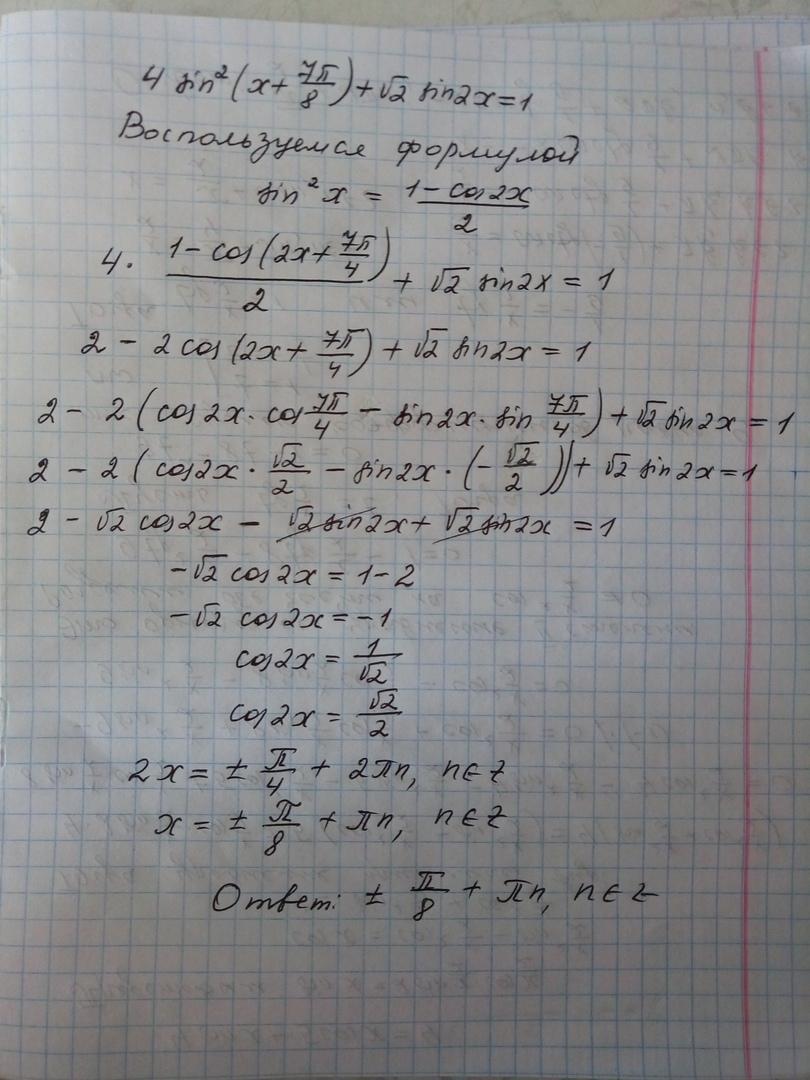 4 sin²(x + 7π/8) + √2 sin2x = 1
Воспользуемся формулой
sin²x = (1 - cos2x)/2
4 · (1 - cos(2x + 7π/4))/2 + √2 sin2x = 1
2 - 2cos(2x + 7π/4) + √2 sin2x = 1
2 - 2(cos2x · cos 7π/4 - sin2x · sin 7π/4) + √2 sin2x = 1
2 - 2(cos2x · √2/2 - sin2x · (-√2/2)) + √2 sin2x = 1
2 - √2 cos2x - √2 sin2x + √2 sin2x = 1
-√2 cos2x = 1 - 2
-√2 cos2x = -1
cos2x = 1/√2
cos2x = √2/2
2x = ± π/4 + 2πn, n∈Z
x = ± π/8 + πn, n∈Z
Ответ: ± π/8 + πn, n∈Z